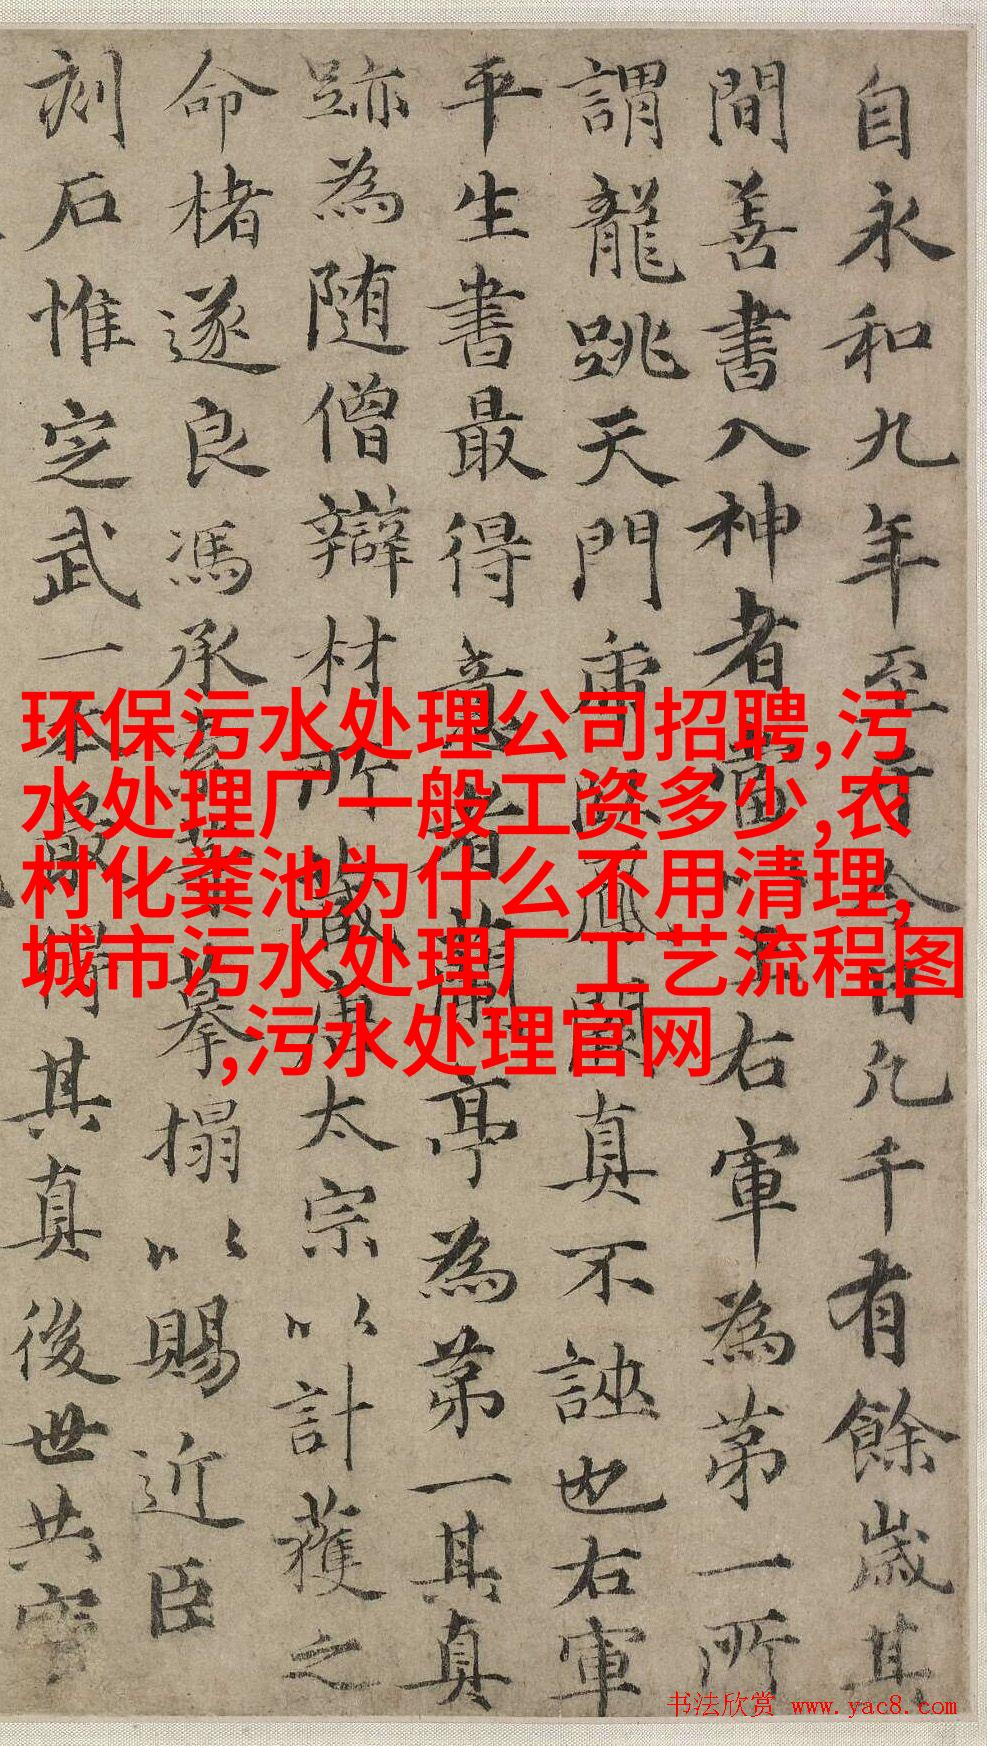 自永和九年至今凡千有餘歲其
間善書入神者當右軍為第一所
謂龍跳天門虎臥鳳閣真不誣也右軍
平生書最得意者蘭亭為第一其真
跡為随僧辯材所藏唐太宗以計獲之
命楮遂良馮承素等摹搨以賜近臣
刻石惟定武一本最得其真後世共寶
环保污水处理公司招聘,污
水处理厂一般工资多少,农
村化粪池为什么不用清理,
城市污水处理厂工艺流程图
,污水处理官网
书法欣赏 www.yac8.com